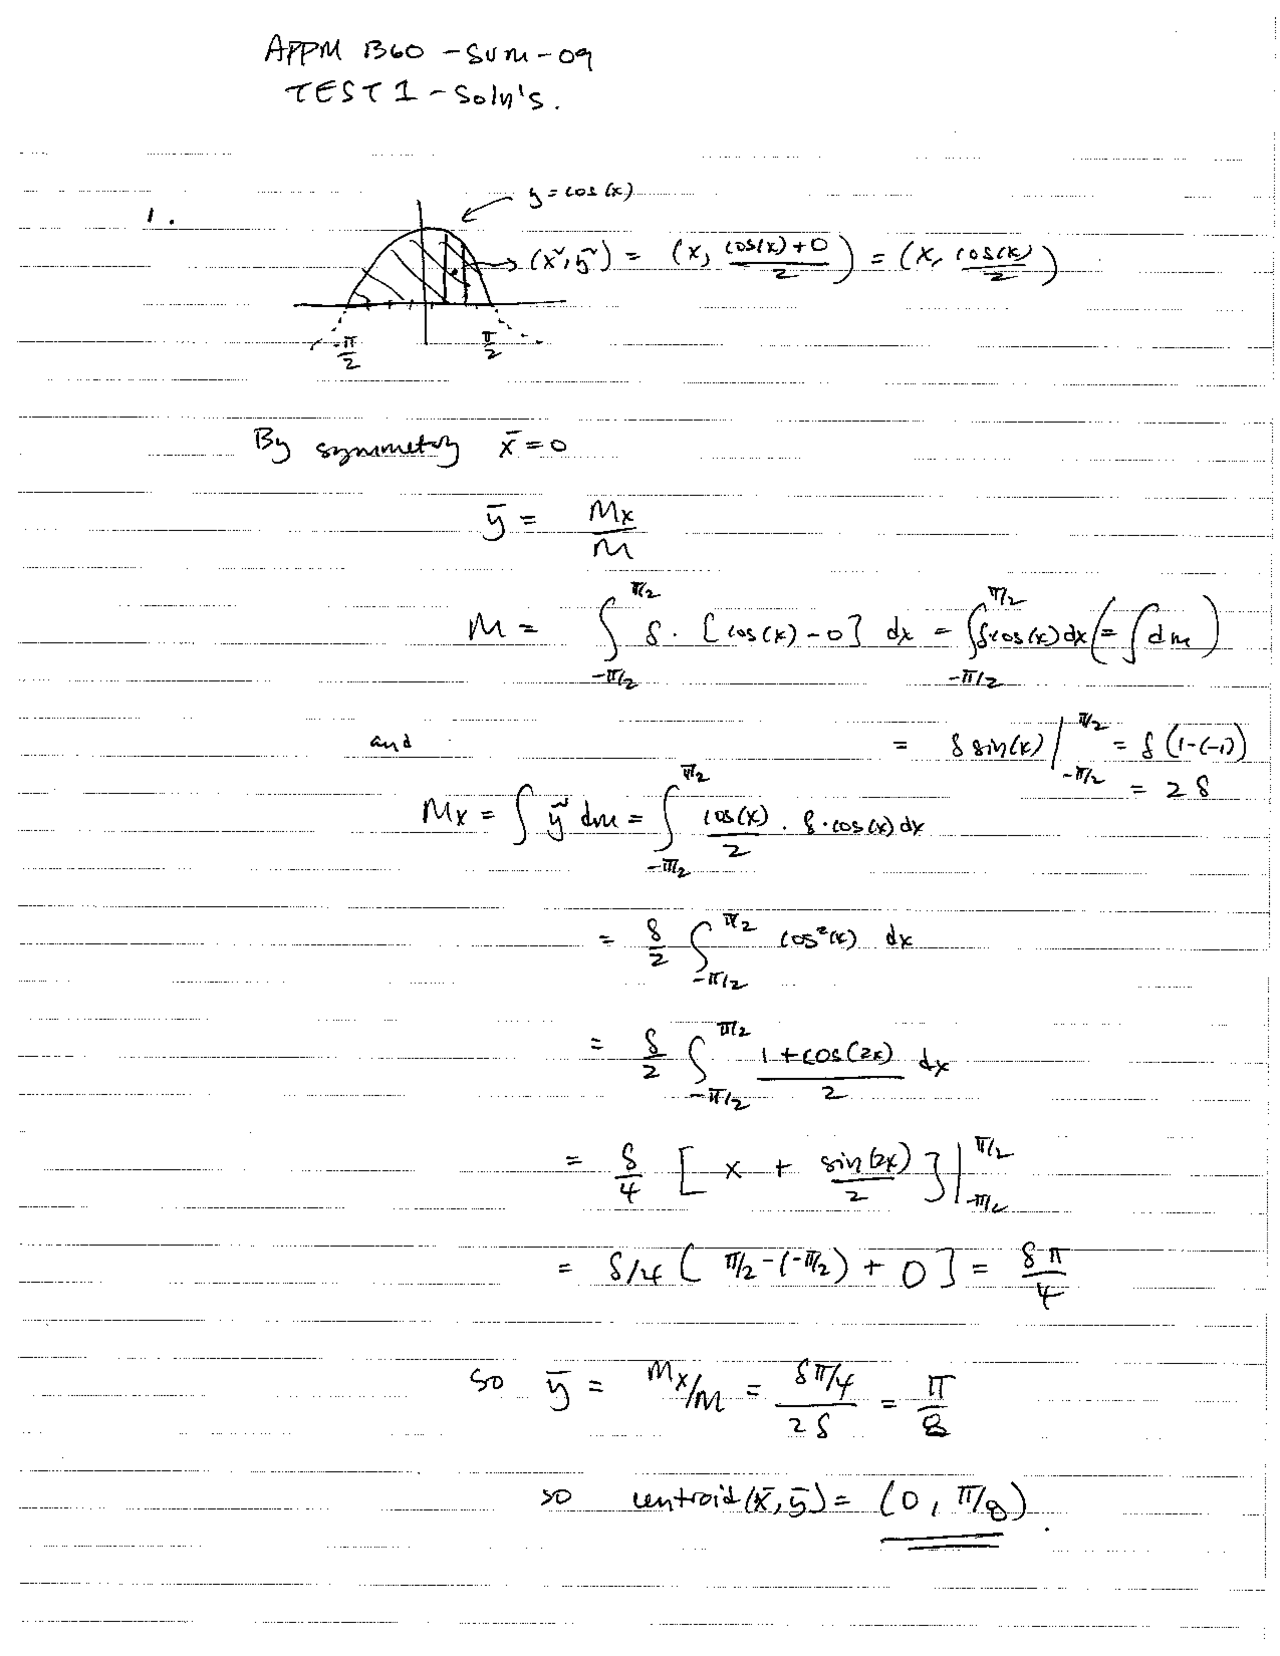 APPM 1360 - SUM - 09
TEST 1 - Soln's.
1.
y = cos(x)
(x̃, ỹ) = (x, (cos(x)+0)/2) = (x, cos(x)/2)
-π/2 π/2
By symmetry x̄ = 0
ȳ = Mx/M
M = ∫_{-π/2}^{π/2} δ · [cos(x) - 0] dx = ∫_{-π/2}^{π/2} δ·cos(x) dx (= ∫ dm)
= δ sin(x) |_{-π/2}^{π/2} = δ (1-(-1))
= 2δ
and
Mx = ∫ ỹ dm = ∫_{-π/2}^{π/2} cos(x)/2 · δ·cos(x) dx
= δ/2 ∫_{-π/2}^{π/2} cos²(x) dx
= δ/2 ∫_{-π/2}^{π/2} (1+cos(2x))/2 dx
= δ/4 [x + sin(2x)/2] |_{-π/2}^{π/2}
= δ/4 [π/2-(-π/2) + 0] = δπ/4
so ȳ = Mx/M = (δπ/4)/(2δ) = π/8
so centroid (x̄, ȳ) = (0, π/8).